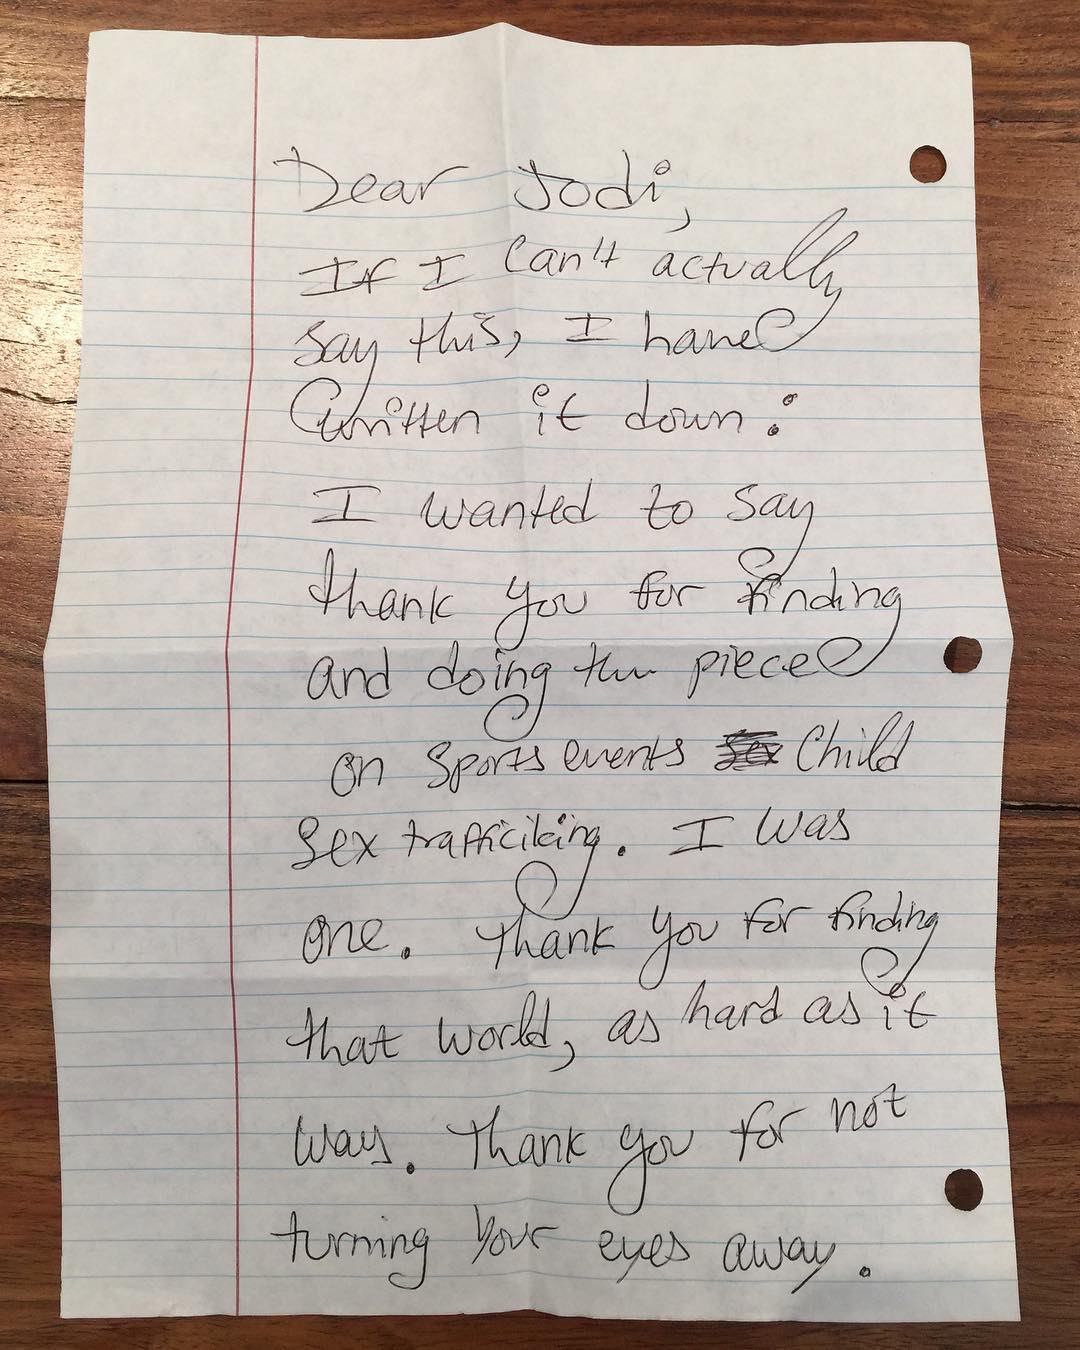 Dear Jodi,
If I can't actually
say this, I have
written it down:
I wanted to say
thank you for finding
and doing the piece
on sports events Child
sex trafficiking. I was
one. Thank you for finding
that world, as hard as it
was. Thank you for not
turning your eyes away.